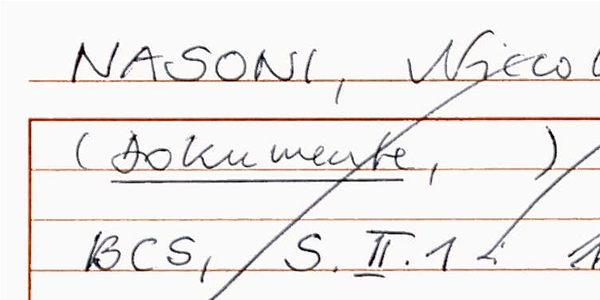 NASONI, Niccol
(Dokumente, )
BCS, S. II.1